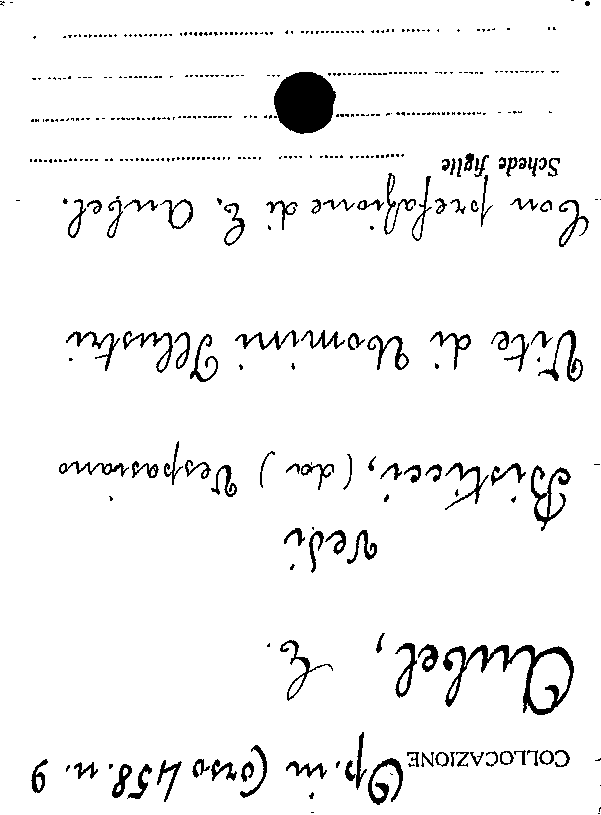 COLLOCAZIONE Op. in Corso 458. n. 9
Aubel, E.
Vedi
Bisticci, (da) Vespasiano
Vite di Uomini Illustri
Con prefazione di E. Aubel.
Schede figlie